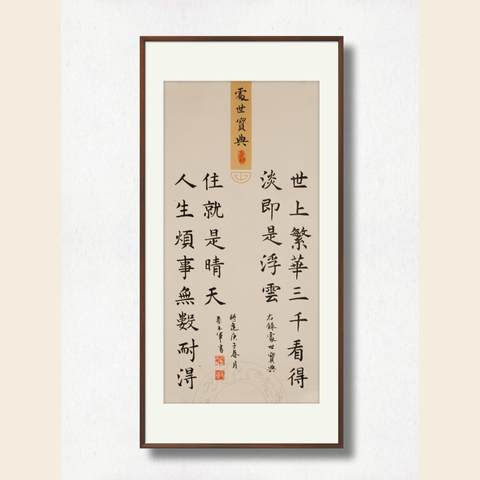 處世寶典
世上繁華三千看得
淡即是浮雲
人生煩事無數耐得
住就是晴天
右錄處世寶典
時逢庚子春月